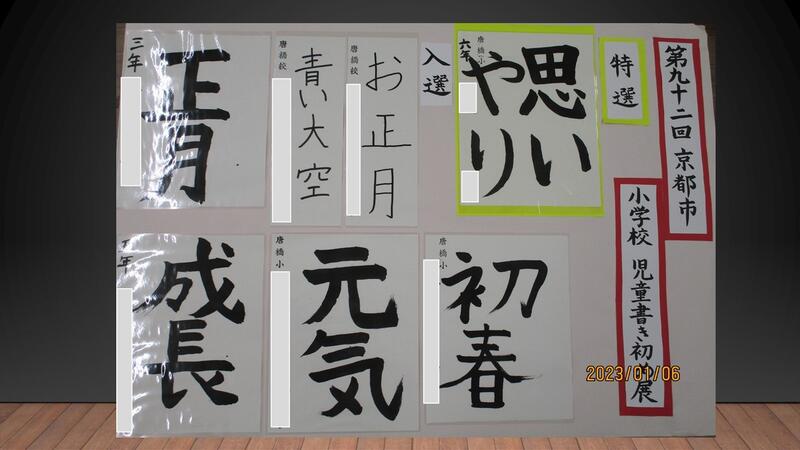 第九十二回 京都市
小学校 児童書き初め展
特選
六年
唐橋小
思い
やり
入選
唐橋校
お正月
唐橋校
青い大空
三年
正月
唐橋小
初春
唐橋小
元気
年
成長
2023/01/06